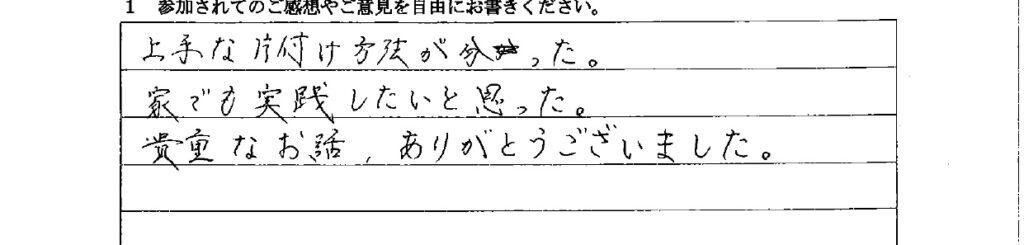 1 参加されてのご感想やご意見を自由にお書きください。
上手な片付け方法が分かった。
家でも実践したいと思った。
貴重なお話、ありがとうございました。